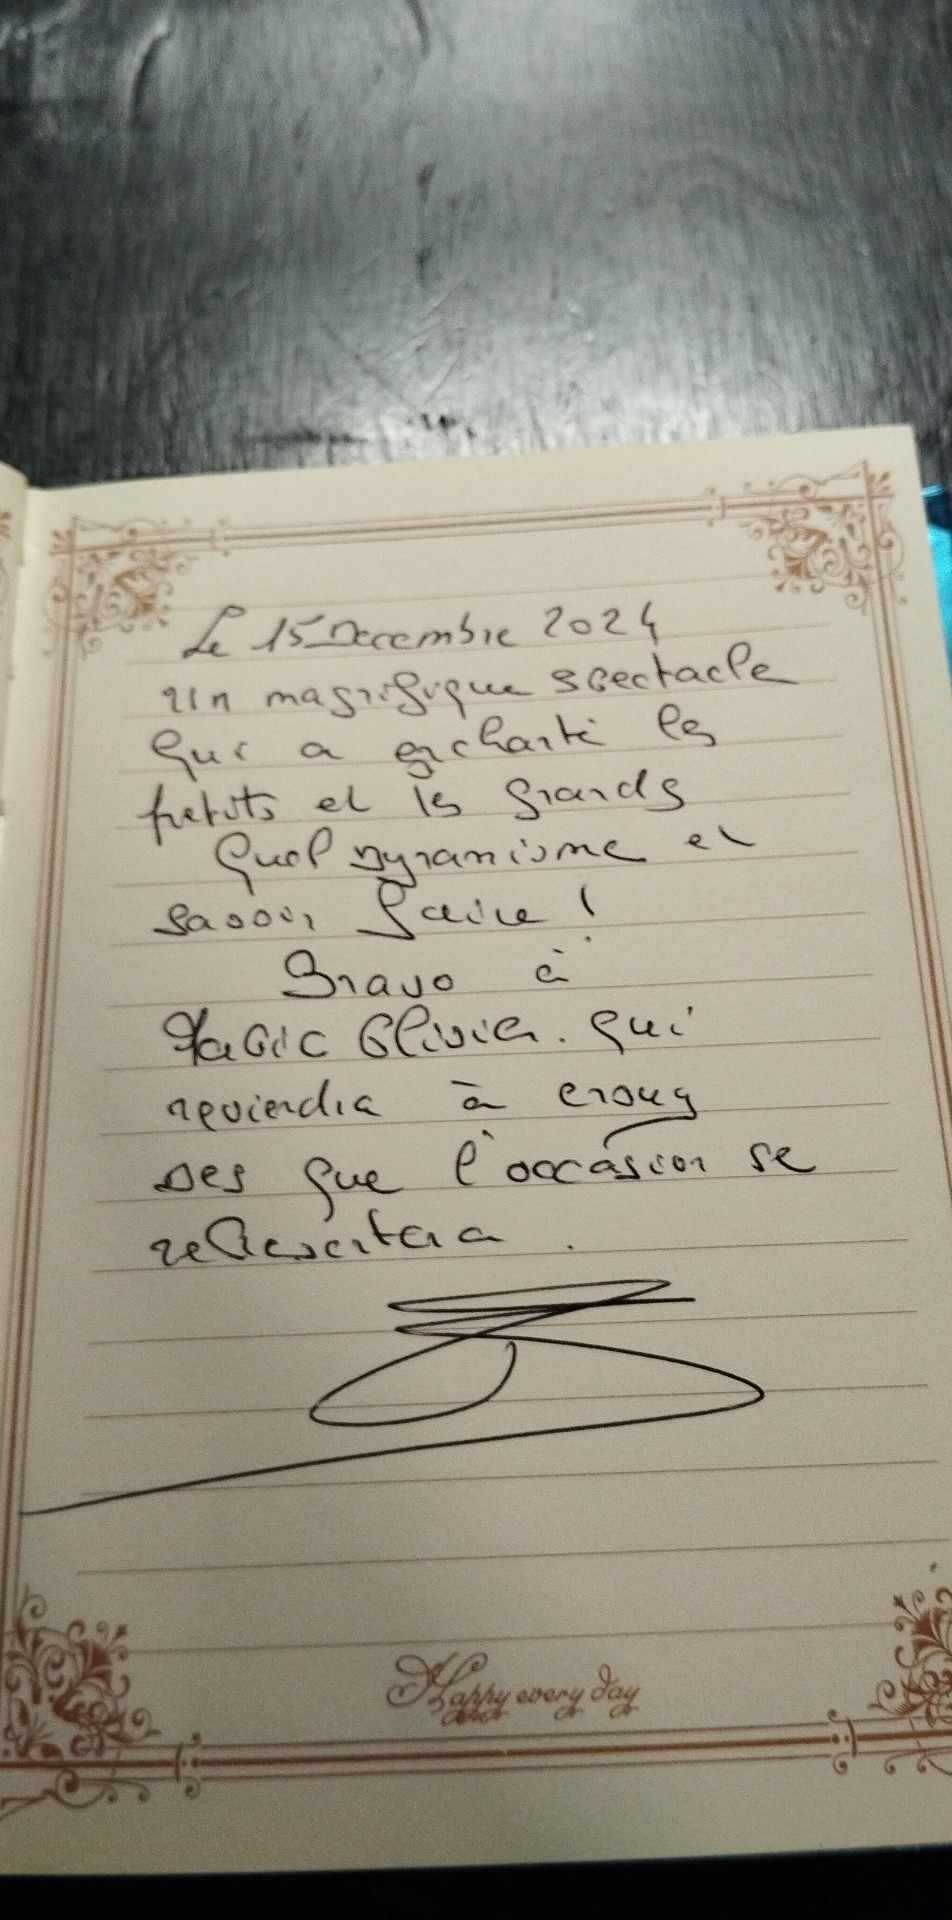 Le 15 Decembre 2024
Un magnifique spectacle
qui a enchanté les
petits et les grands
Quel dynamisme et
savoir faire !
Bravo à
Magic Olivier. qui
reviendra à crouy
Des que l'occasion se
représentera .
Happy every day